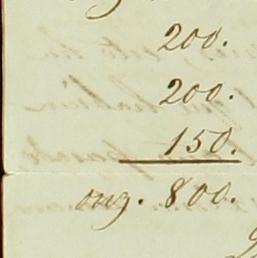 200.
200.
150.
800.